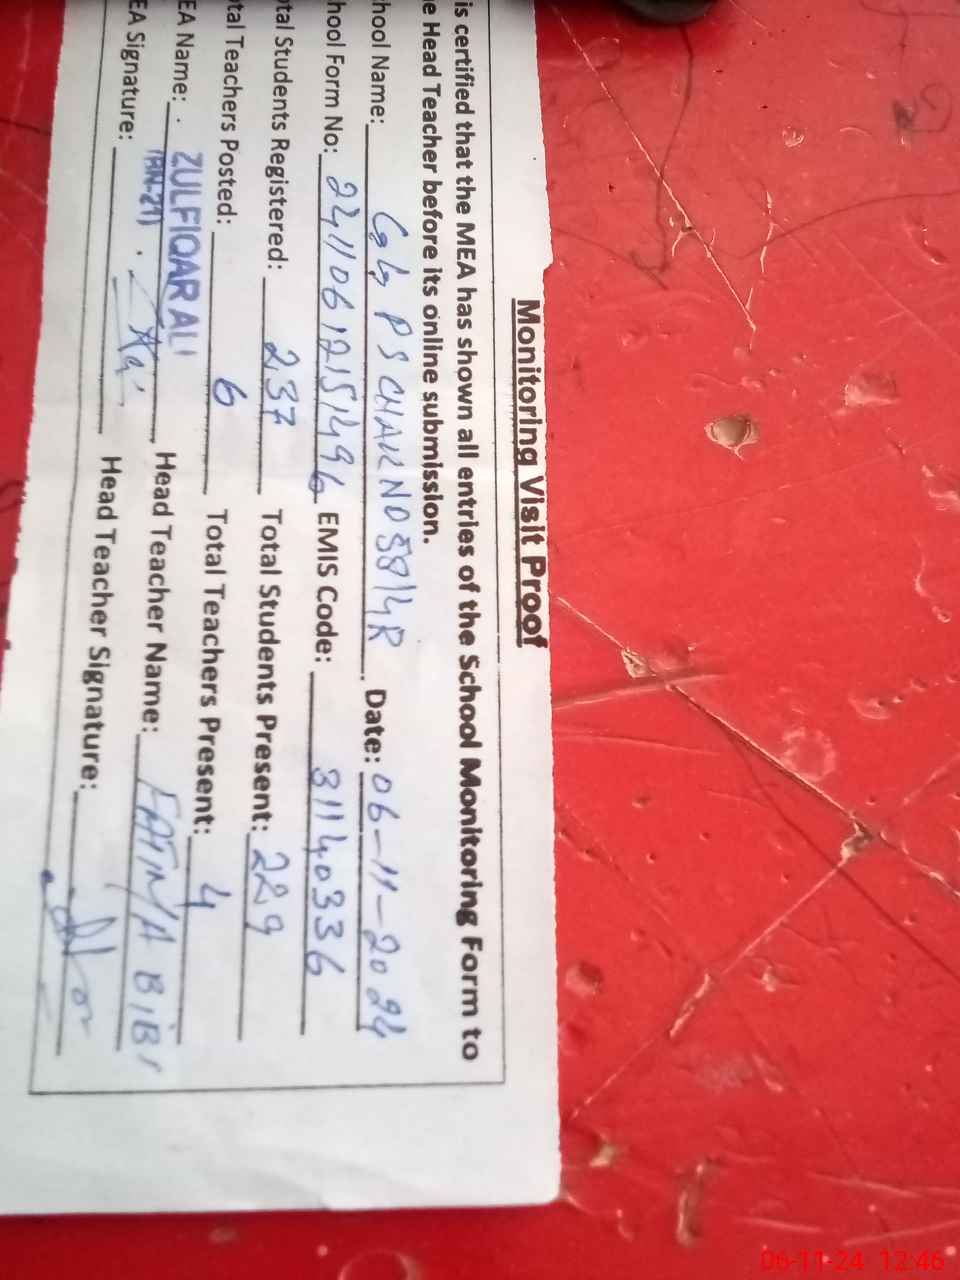 Monitoring Visit Proof
is certified that the MEA has shown all entries of the School Monitoring Form to
e Head Teacher before its online submission.
hool Name: GG PS CHAK NO 58 14R Date: 06-11-2024
hool Form No: 2411061215496 EMIS Code: 31140336
tal Students Registered: 237 Total Students Present: 229
tal Teachers Posted: 6 Total Teachers Present: 4
EA Name: ZULFIQAR ALI Head Teacher Name: FATMA BIBI
EA Signature: Head Teacher Signature:
06-11-24 12:46